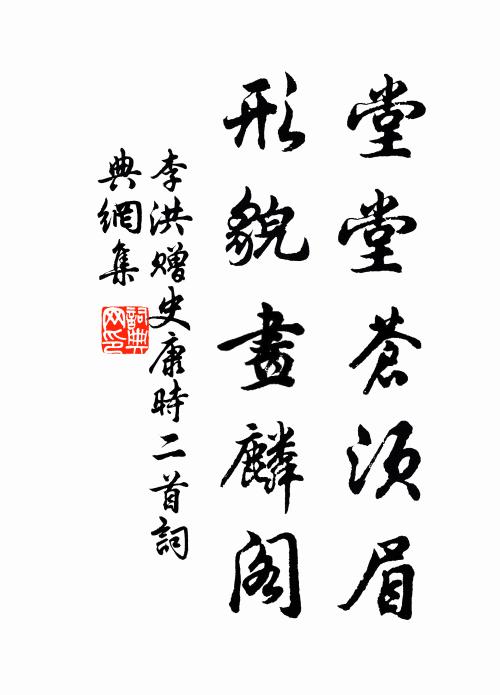 堂堂蒼須眉
形貌畫麟阁
李洪赠史康時二首詞
典網集
詞典
网印